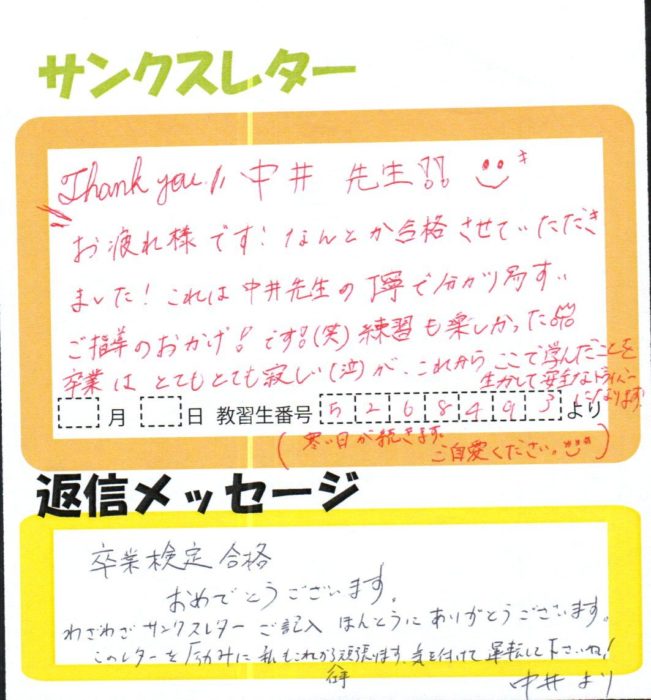 サンクスレター
Thank you!! 中井 先生!!
お疲れ様です！なんとか合格させていただき
ました！これは中井先生の丁寧で分かり易すい
ご指導のおかげ！です!!(笑)練習も楽しかった
卒業はとてもとても寂しい(泣)が、これからここで学んだことを
生かして安全なドライバーになります!
月 日 教習生番号 5268493 より
(寒い日が続きます。
ご自愛ください。)
返信メッセージ
卒業検定合格
おめでとうございます。
わざわざサンクスレターご記入ほんとうにありがとうございます。
このレターを励みに私もこれから頑張ります。気を付けて運転して下さいね!
中井より